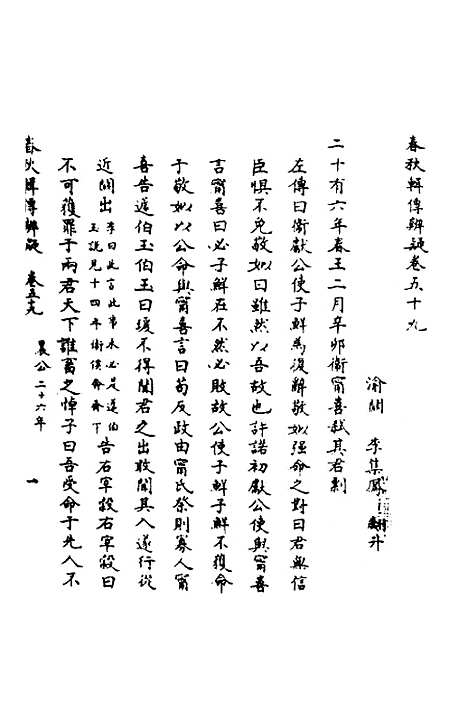 春秋輯傳辨疑卷五十九
渝關 李集鳳 翽升
二十有六年春王二月辛卯衛甯喜弑其君剽
左傳曰衛獻公使子鮮為復辭敬姒强命之對曰君無信
臣懼不免敬姒曰雖然以吾故也許諾初獻公使與甯喜
言甯喜曰必子鮮在不然必敗故公使子鮮子鮮不獲命
于敬姒以公命與甯喜言曰苟反政由甯氏祭則寡人甯
喜告蘧伯玉伯玉曰瑗不得聞君之出敢聞其入遂行從
近關出李曰此言此事未必是蘧伯玉説見十四年衛侯命奔下告右宰穀右宰穀曰
不可獲罪于兩君天下誰畜之悼子曰吾受命于先人不
春秋輯傳辨疑 卷五十九
襄公二十六年
一